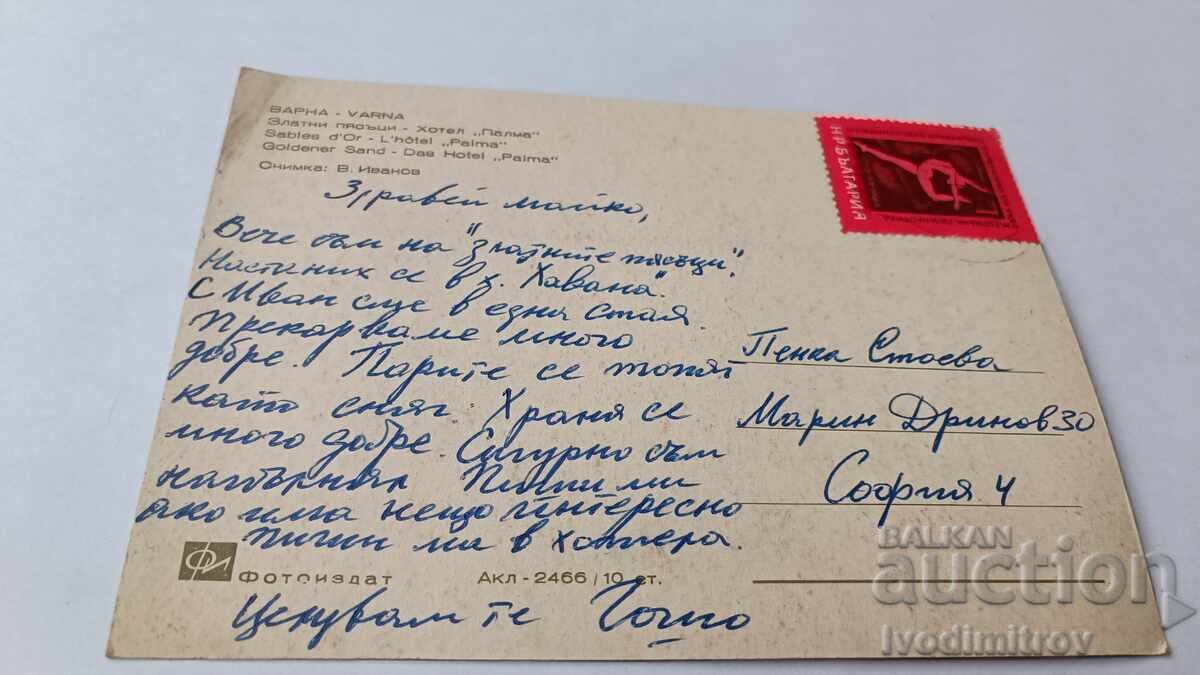 ВАРНА - VARNA
Златни пясъци - Хотел „Палма"
Sables d'Or - L'hôtel „Palma"
Goldener Sand - Das Hotel „Palma"
Снимка: В. Иванов
Н Р БЪЛГАРИЯ
Здравей майко,
Вече съм на "Златните пясъци".
Настаних се в х. Хавана".
С Иван сме в една стая.
Прекарваме много
добре. Парите се топят
като сняг. Храня се
много добре. Сигурно съм
напълнял Пиши ми
ако има нещо интересно
в хотела.
Целувам те Гошо
Пенка Стоева
Марин Дринов 30
София 4
ФИ Фотоиздат Акл-2466/10 ст.
BALKAN
auction
Ivodimitrov